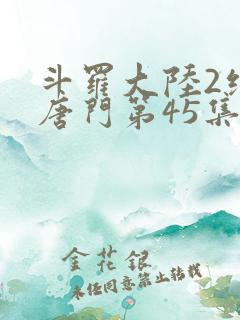 斗羅大陸2
唐門第45集
金花銀
未經同意禁止轉載